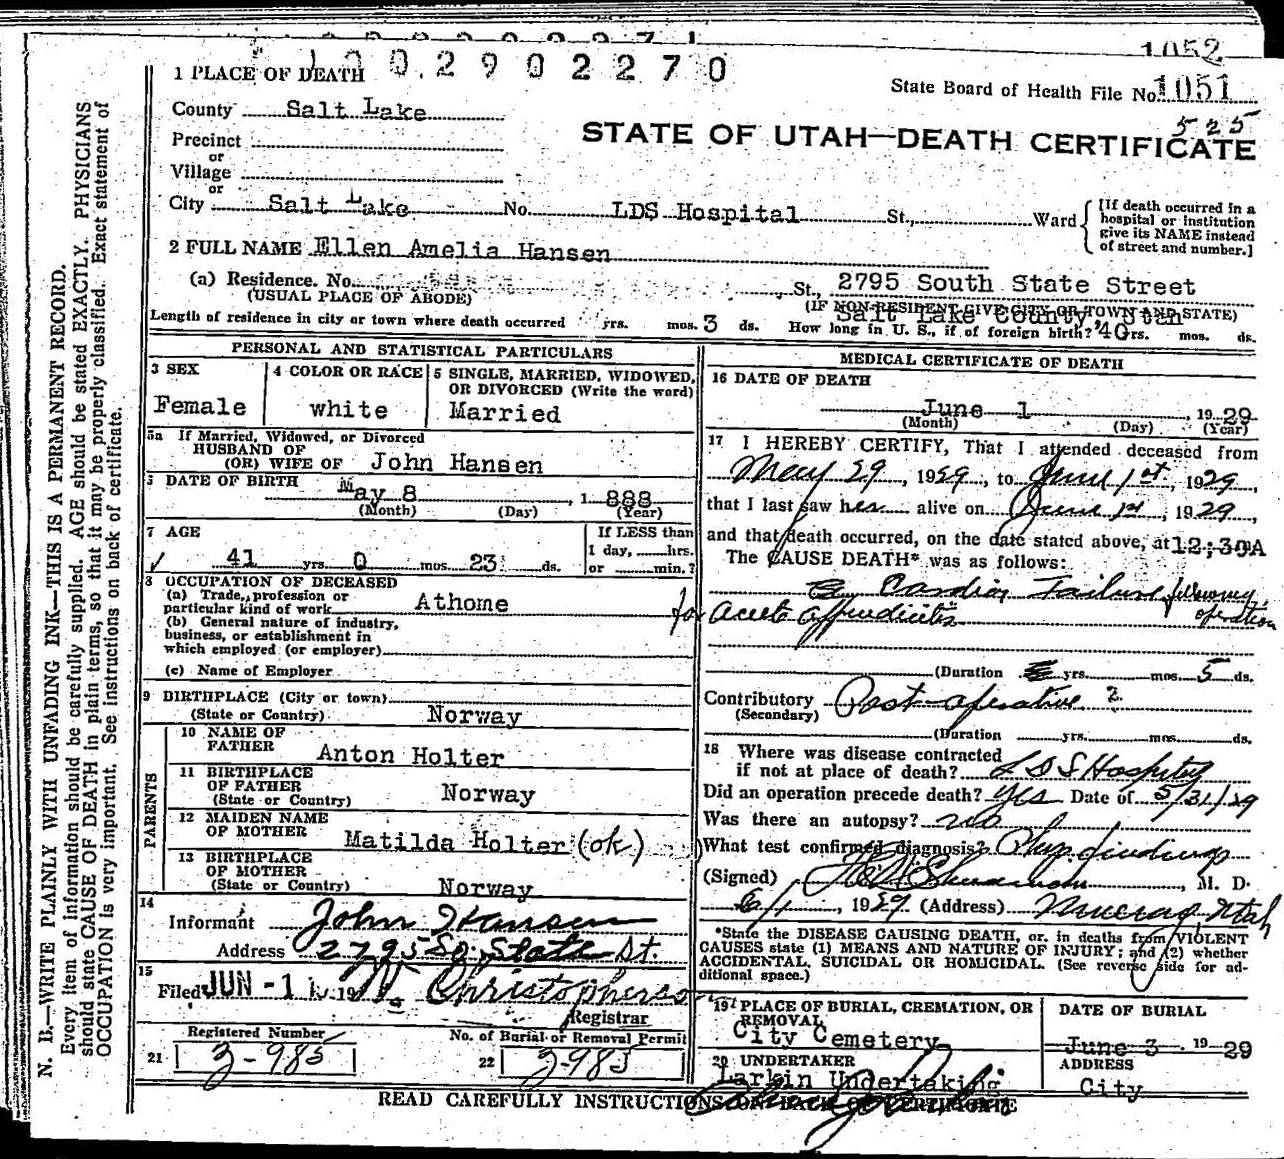 1052
1002902270
1 PLACE OF DEATH
State Board of Health File No. 1051
County Salt Lake
525
STATE OF UTAH—DEATH CERTIFICATE
Precinct
or
Village
or
City Salt Lake No. LDS Hospital St., Ward
[If death occurred in a
hospital or institution
give its NAME instead
of street and number.]
2 FULL NAME Ellen Amelia Hansen
(a) Residence. No. St., 2795 South State Street
(USUAL PLACE OF ABODE) (IF NON-RESIDENT GIVE CITY OR TOWN AND STATE)
Salt Lake County, Utah
Length of residence in city or town where death occurred yrs. mos. 3 ds. How long in U. S., if of foreign birth? 40 yrs. mos. ds.
PERSONAL AND STATISTICAL PARTICULARS
3 SEX
Female
4 COLOR OR RACE
white
5 SINGLE, MARRIED, WIDOWED,
OR DIVORCED (Write the word)
Married
5a If Married, Widowed, or Divorced
HUSBAND OF
(OR) WIFE OF John Hansen
DATE OF BIRTH May 8, 1888
(Month) (Day) (Year)
7 AGE
41 yrs. 0 mos. 23 ds.
If LESS than
1 day, hrs.
or min.?
8 OCCUPATION OF DECEASED
(a) Trade, profession or
particular kind of work Athome
(b) General nature of industry,
business, or establishment in
which employed (or employer)
(c) Name of Employer
9 BIRTHPLACE (City or town)
(State or Country) Norway
PARENTS
10 NAME OF
FATHER Anton Holter
11 BIRTHPLACE
OF FATHER
(State or Country) Norway
12 MAIDEN NAME
OF MOTHER Matilda Holter (ok)
13 BIRTHPLACE
OF MOTHER
(State or Country) Norway
14
Informant John Hansen
Address 2795 So. State St.
15
Filed JUN -1 19
Registrar
Registered Number
21 3-985
No. of Burial or Removal Permit
22 3-985
MEDICAL CERTIFICATE OF DEATH
16 DATE OF DEATH
June 1, 1929
(Month) (Day) (Year)
17 I HEREBY CERTIFY, That I attended deceased from
May 29, 1929, to June 1st, 1929,
that I last saw her alive on June 1st, 1929,
and that death occurred, on the date stated above, at 12:30A
The CAUSE DEATH* was as follows:
Cardiac Failure following
operation
for acute appendicitis
(Duration yrs. mos. 5 ds.
Contributory Post-operative ?
(Secondary)
(Duration yrs. mos. ds.
18 Where was disease contracted
if not at place of death? LDS Hospital
Did an operation precede death? yes Date of 5/31/29
Was there an autopsy? no
What test confirmed diagnosis? Phys findings
(Signed) , M. D.
6/1, 1929 (Address) Murray Utah
*State the DISEASE CAUSING DEATH, or, in deaths from VIOLENT
CAUSES state (1) MEANS AND NATURE OF INJURY; and (2) whether
ACCIDENTAL, SUICIDAL OR HOMICIDAL. (See reverse side for ad-
ditional space.)
19 PLACE OF BURIAL, CREMATION, OR
REMOVAL
City Cemetery
DATE OF BURIAL
June 3 1929
20 UNDERTAKER
Larkin Undertaking
ADDRESS
City
READ CAREFULLY INSTRUCTIONS ON BACK OF CERTIFICATE
N. B.—WRITE PLAINLY WITH UNFADING INK—THIS IS A PERMANENT RECORD.
Every item of information should be carefully supplied. AGE should be stated EXACTLY. PHYSICIANS
should state CAUSE OF DEATH in plain terms, so that it may be properly classified. Exact statement of
OCCUPATION is very important. See instructions on back of certificate.